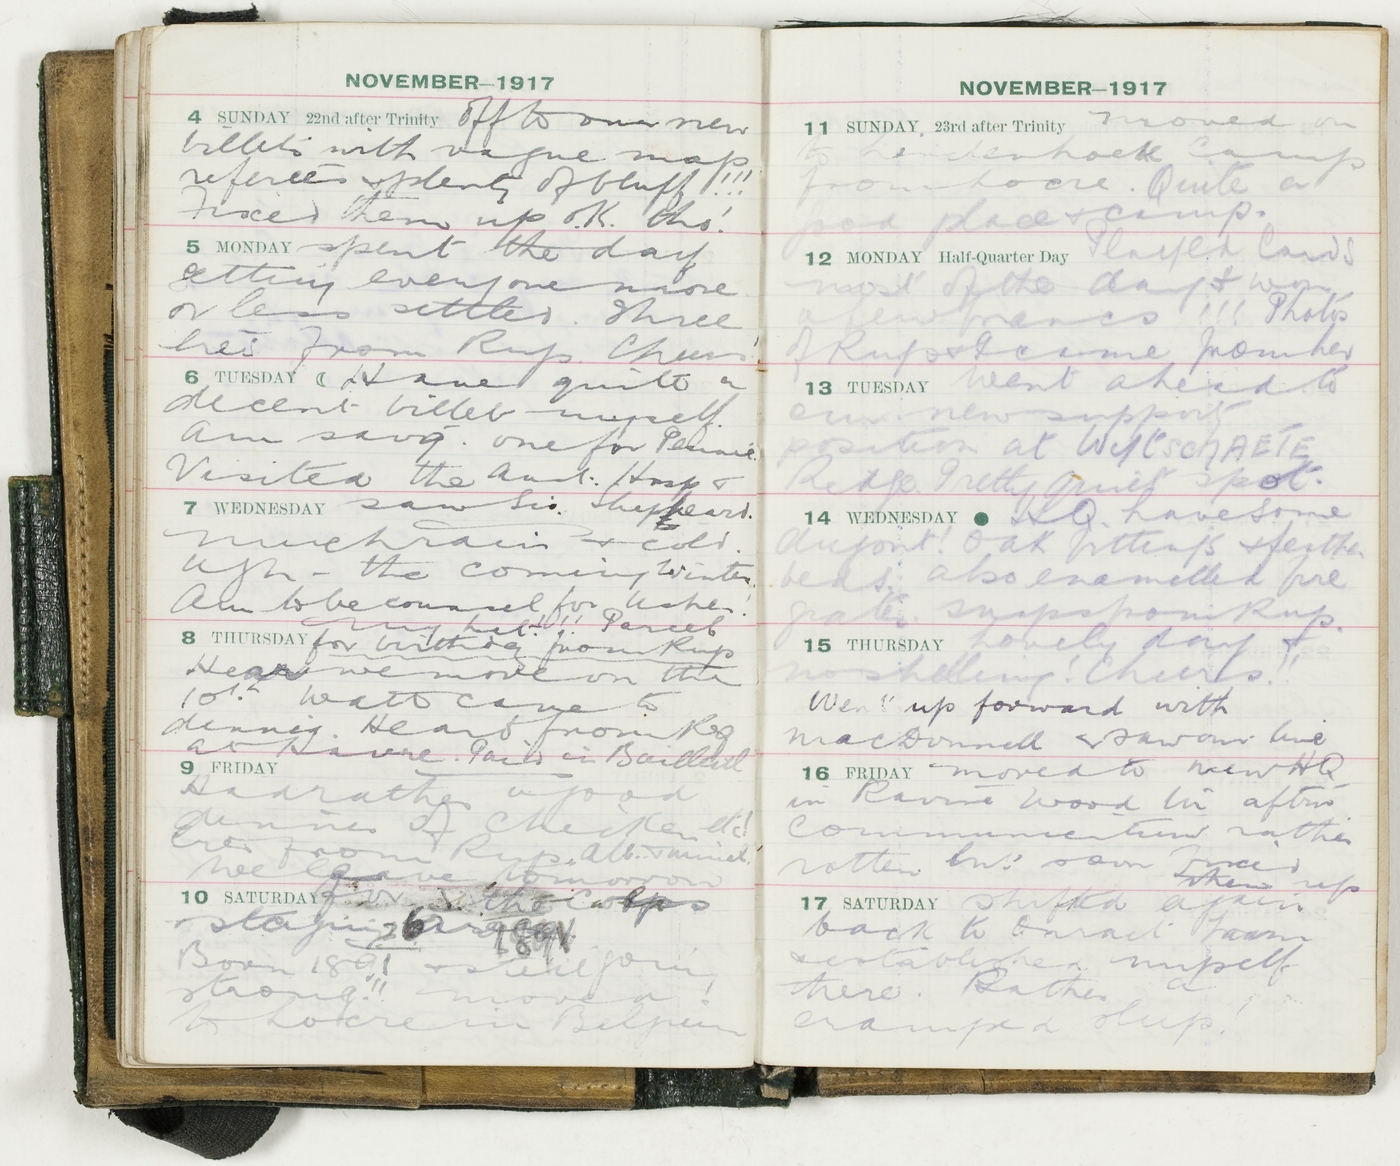 NOVEMBER—1917
4 SUNDAY 22nd after Trinity Off to our new
billets with vague map
references & plenty of bluff!!!
Fixed them up OK. tho'!
5 MONDAY spent the day
getting everyone more
or less settled. Three
lres from Rup. Cheers!
6 TUESDAY Have quite a
decent billet myself.
Am savg. one for
Visited the Aust. Hosp &
7 WEDNESDAY saw Sis. Shepheard.
Much rain & cold.
Ugh - the coming winter.
Am to be counsel for Usher!
My hat!!! Parcel
8 THURSDAY for birthday from Rup
Hear we move on the
10th. Watt came to
dinner. Heard from Reg
at Havre. Paid in Bailleul
9 FRIDAY
Had rather a good
dinner of chicken etc!
Lres from Rup, Alb. &
We leave tomorrow
10 SATURDAY for the Corps
staging area
26
Born 1891 & still going
strong!!! moved!
to Locre in Belgium
NOVEMBER—1917
11 SUNDAY, 23rd after Trinity moved on
to camp
from Locre. Quite a
good place & camp.
12 MONDAY Half-Quarter Day Played Cards
most of the day & won
a few francs!!! Photos
of Rup & I came from her
13 TUESDAY Went ahead to
our new support
position at WytSCHAETE
Ridge Pretty quiet spot.
14 WEDNESDAY HQ. have some
dugout! Oak fittings & feather
beds, also enamelled fire
grates. Snaps from Rup.
15 THURSDAY Lovely day &
no shelling! Cheers!!
Went up forward with
MacDonnell & saw our line
16 FRIDAY moved to new HQ
in Ravine Wood Lin after
communication rather
rotten but soon fixed
up
17 SATURDAY shifted again
back to Onraet Farm
& established myself
there. Rather a
cramped dup!